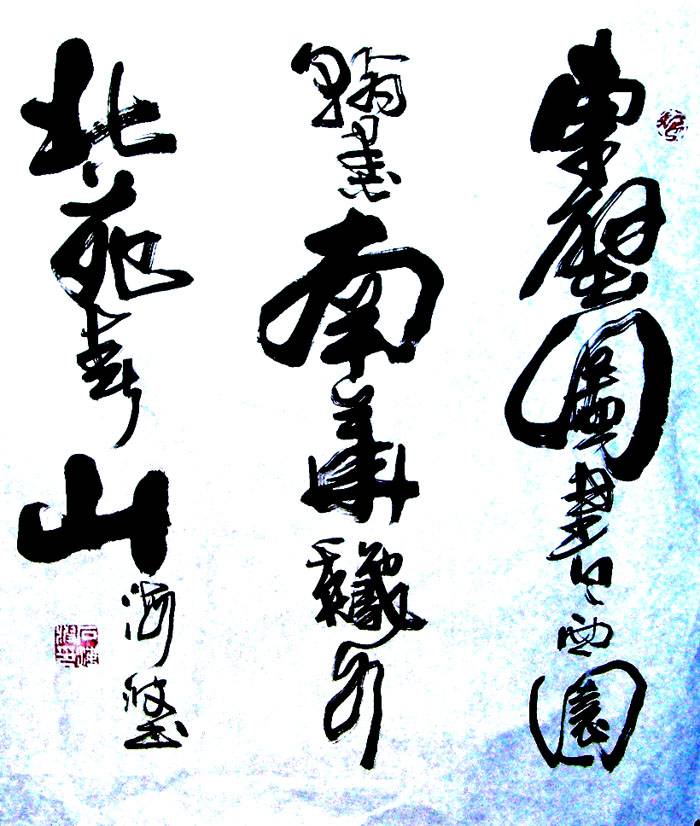 東壁圖書西園
翰墨南華秋水
北苑春山
海波書